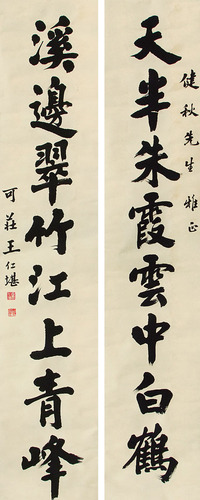 健秋先生雅正
天半朱霞雲中白鶴
溪邊翠竹江上青峰
可莊王仁堪